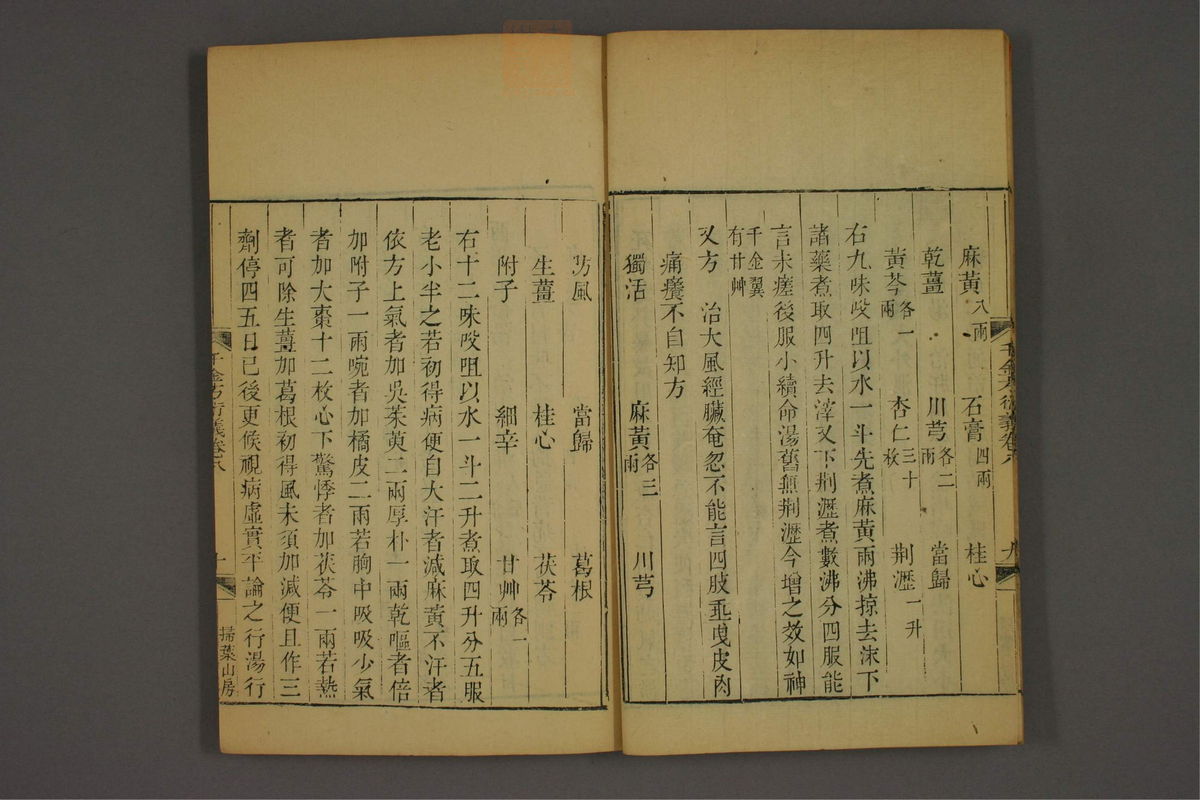 麻黃八兩 石膏四兩 桂心
乾薑 川芎各二兩 當歸
黃芩各一兩 杏仁三十枚 荆瀝一升
右九味㕮咀以水一斗先煮麻黃兩沸掠去沫下
諸藥煮取四升去滓又下荆瀝煮數沸分四服能
言未瘥後服小續命湯舊無荆瀝今增之效如神
千金翼有甘艸
又方 治大風經臟奄忽不能言四肢垂曳皮肉
痛癢不自知方
獨活 麻黃各三兩 川芎
防風 當歸 葛根
生薑 桂心 茯苓
附子 細辛 甘艸各一兩
右十二味㕮咀以水一斗二升煮取四升分五服
老小半之若初得病便自大汗者減麻黃不汗者
依方上氣者加吳茱萸二兩厚朴一兩乾嘔者倍
加附子一兩啘者加橘皮二兩若胸中吸吸少氣
者加大棗十二枚心下驚悸者加茯苓一兩若熱
者可除生薑加葛根初得風未須加減便且作三
劑停四五日已後更候視病虛實平論之行湯行
千金方衍義卷八
十
掃葉山房
千金方衍義卷八
九